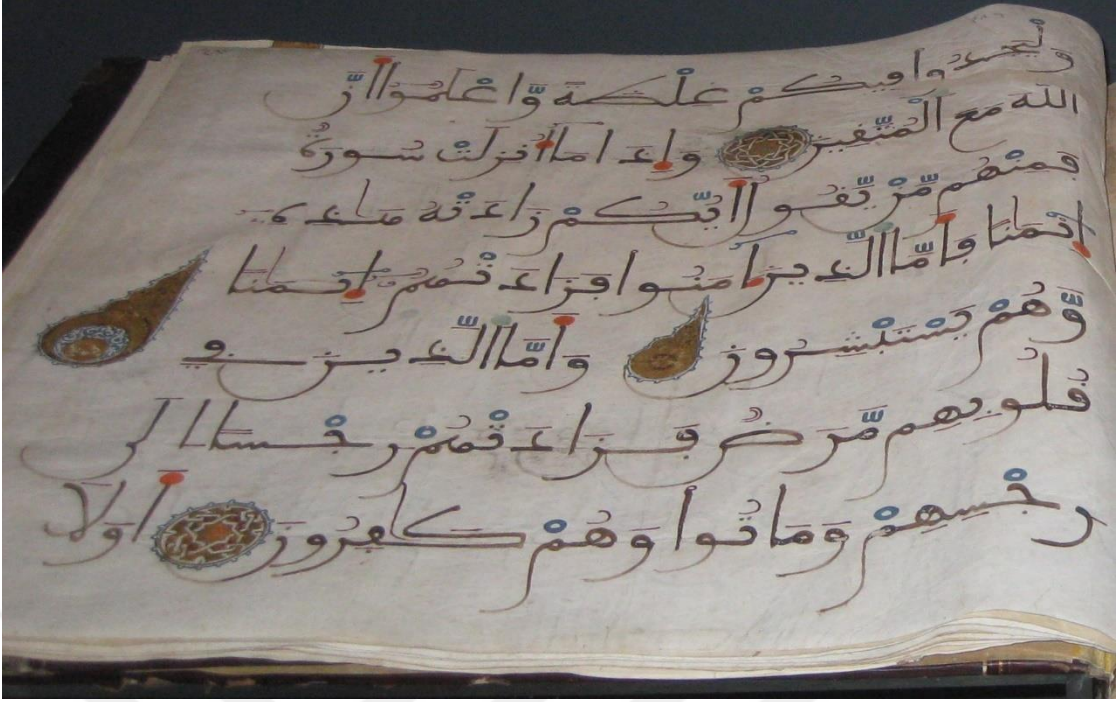 وَلْيَجِدُوا فِيكُمْ غِلْظَةً وَّاعْلَمُوا أَنَّ
اللَّهَ مَعَ الْمُتَّقِينَ وَإِذَا مَا أُنزِلَتْ سُورَةٌ
فَمِنْهُم مَّنْ يَّقُولُ أَيُّكُمْ زَادَتْهُ هَٰذِهِ
إِيمَٰنًا فَأَمَّا الَّذِينَ ءَامَنُوا فَزَادَتْهُمْ إِيمَٰنًا
وَّهُمْ يَسْتَبْشِرُونَ وَأَمَّا الَّذِينَ فِي
قُلُوبِهِم مَّرَضٌ فَزَادَتْهُمْ رِجْسًا إِلَى
رِجْسِهِمْ وَمَاتُوا وَهُمْ كَٰفِرُونَ أَوَلَا